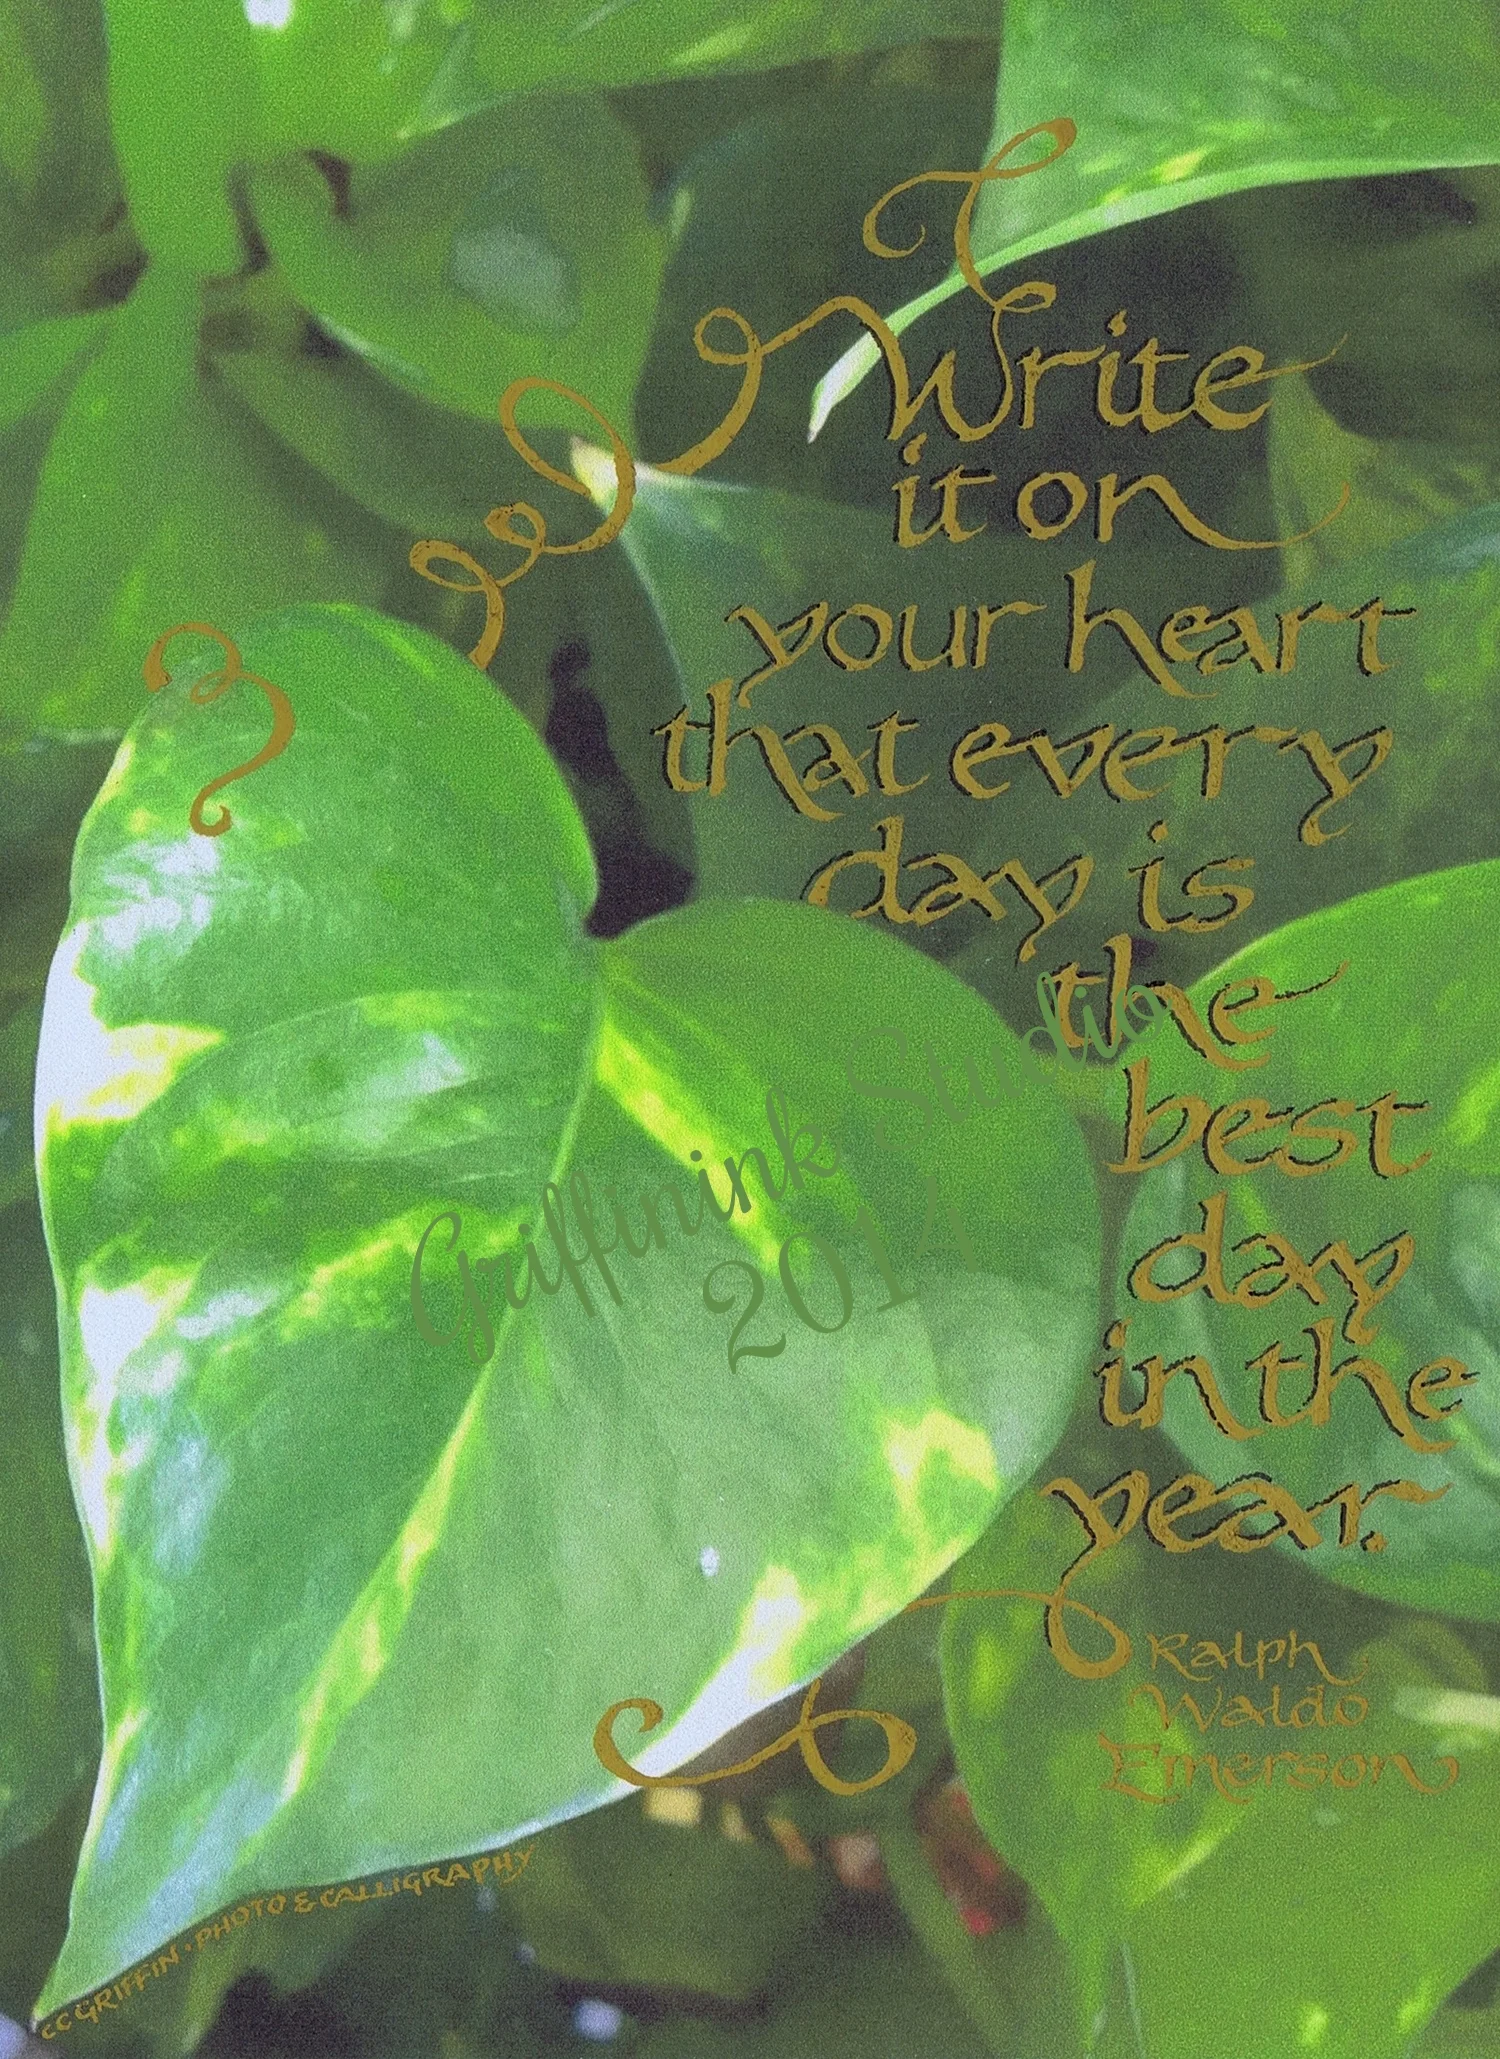 Write
it on
your heart
that every
day is
the
best
day
in the
year.
Ralph
Waldo
Emerson
Griffinink Studio
2014
CC GRIFFIN · PHOTO & CALLIGRAPHY